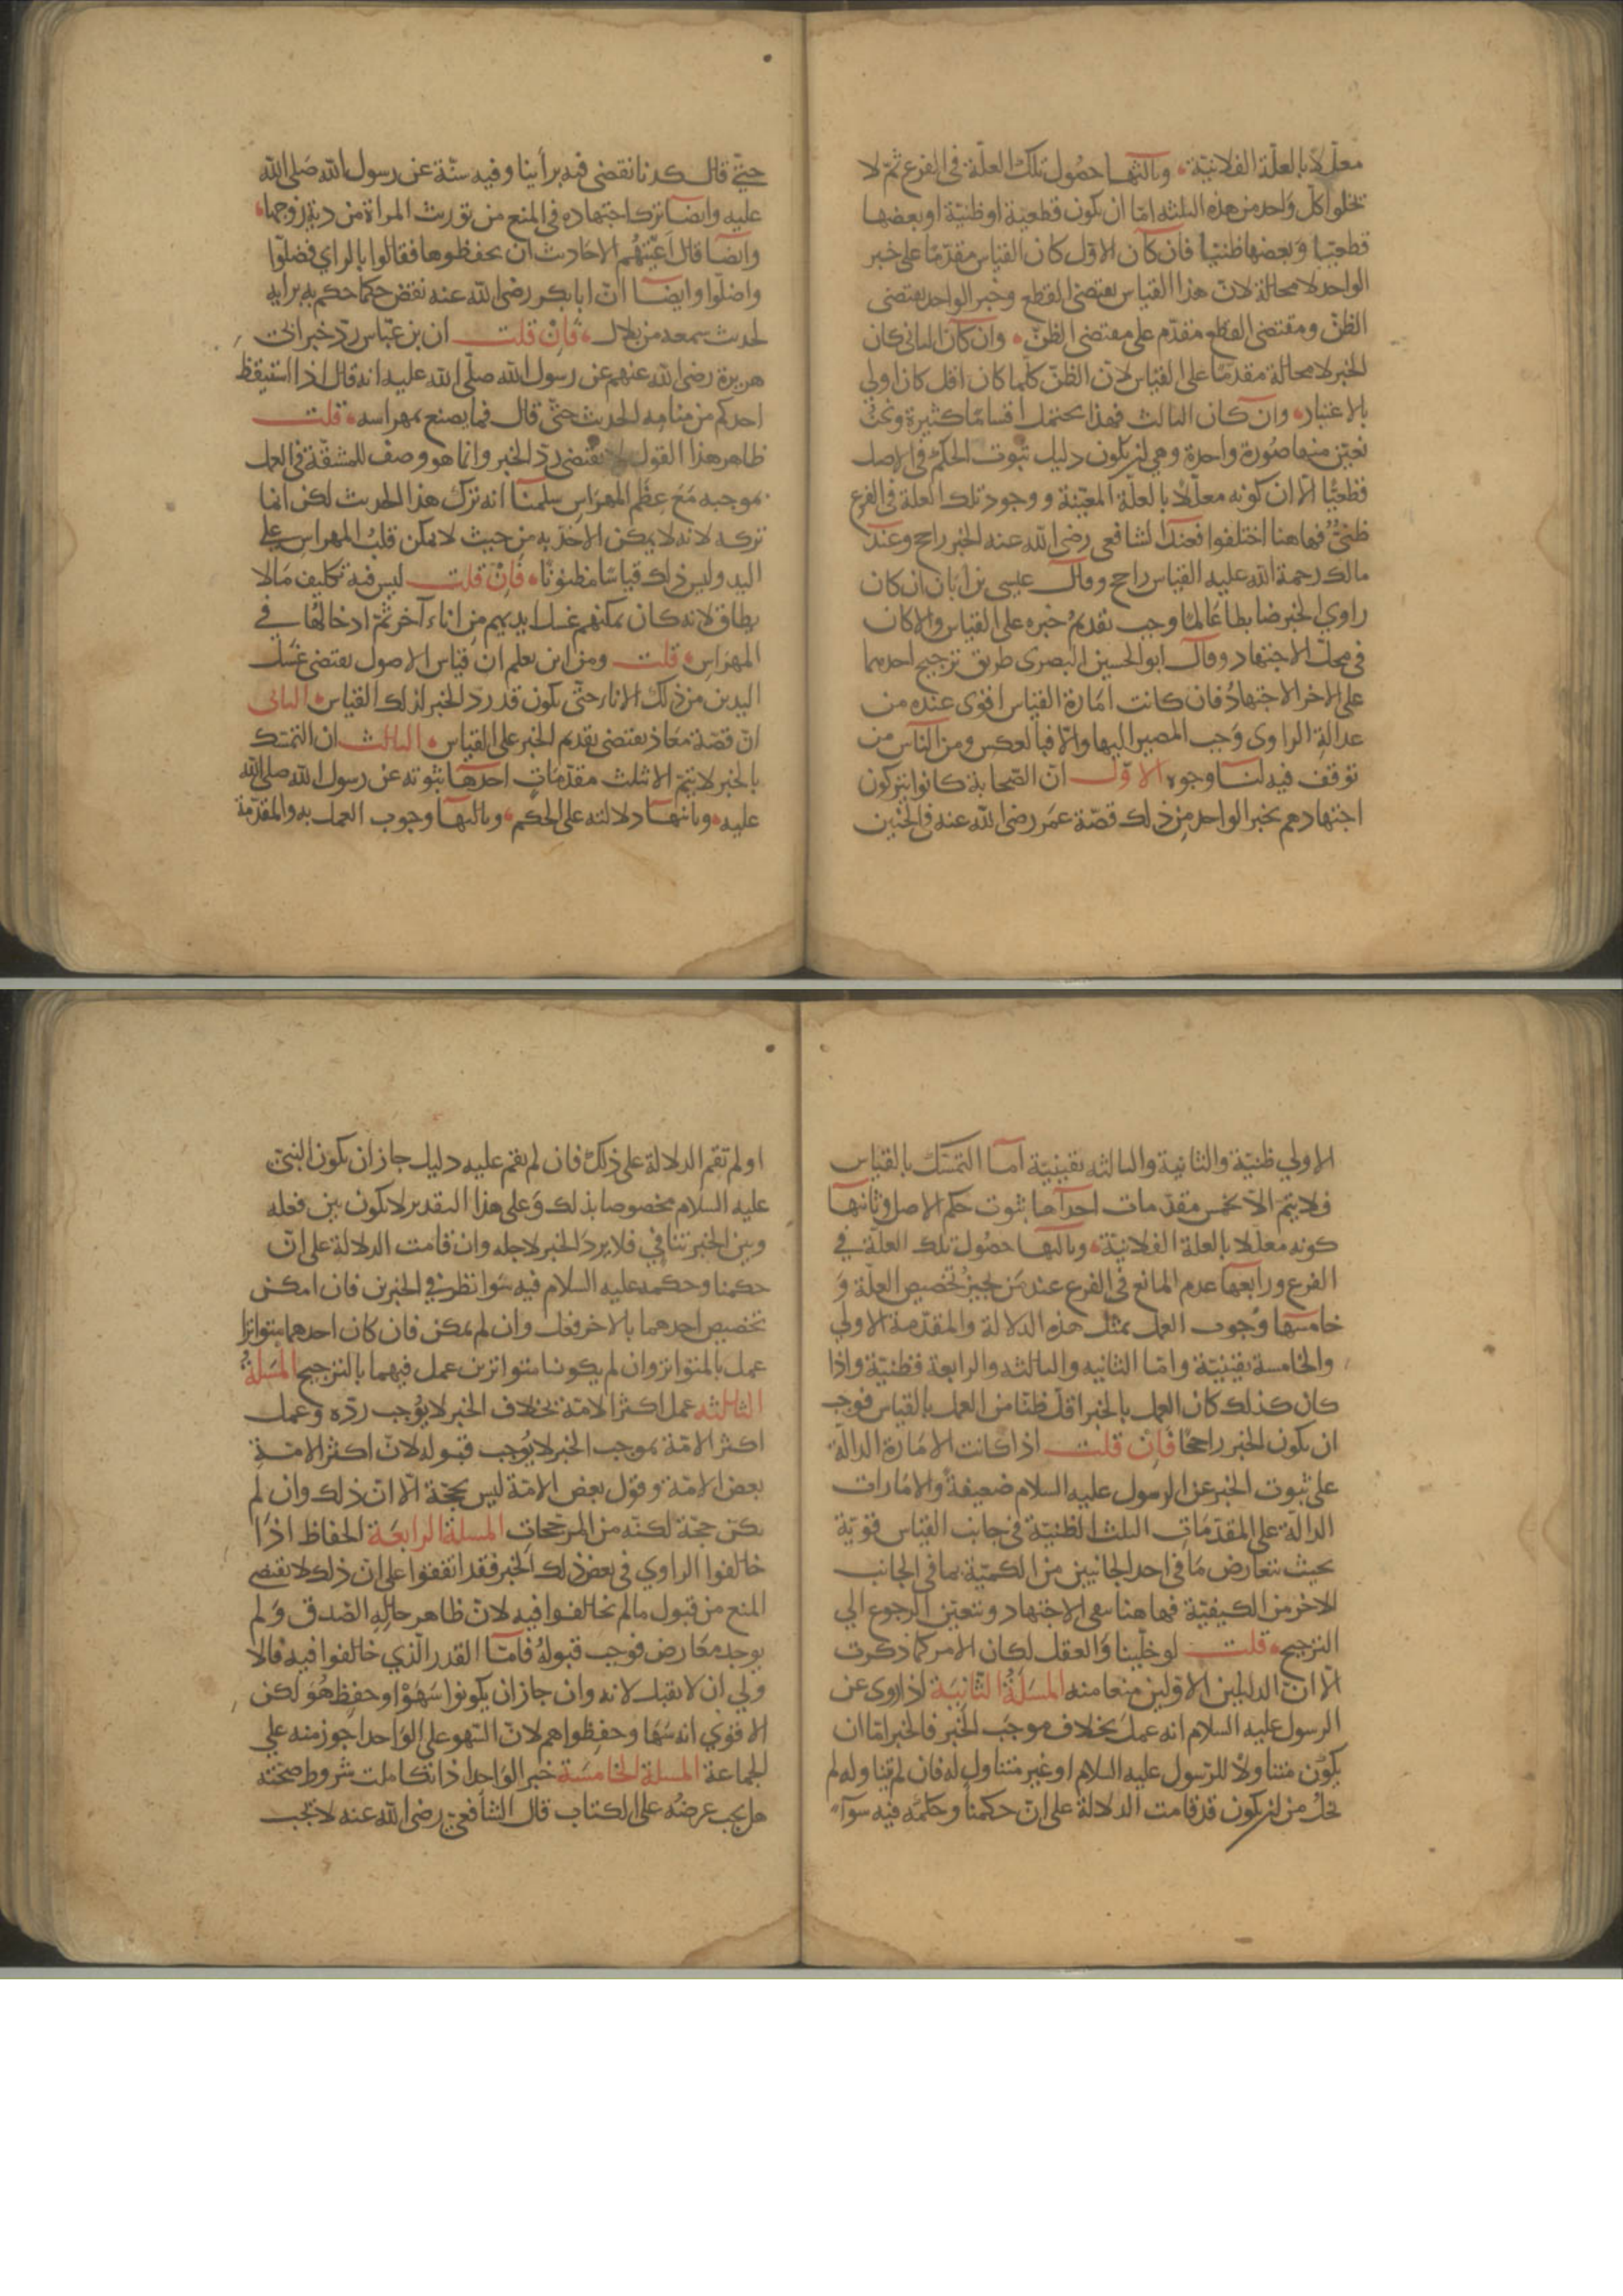 معلّلا بالعلّة الفلانيّة وثالثها حصول تلك العلّة في الفرع ثمّ لا
تخلوا كلّ واحد من هذه الثلثة امّا ان تكون قطعيّة او ظنيّة او بعضها
قطعيّا وبعضها ظنيّا فان كان الاوّل كان القياس مقدّما على خبر
الواحد لا محالة لانّ هذا القياس يقتضى القطع وخبر الواحد يقتضى
الظنّ ومقتضى القطع مقدّم على مقتضى الظنّ وان كان الثاني كان
الخبر لا محالة مقدّما على القياس لانّ الظنّ كلّما كان اقل كان اولى
بالاعتبار وان كان الثالث فهذا يحتمل اقسامًا كثيرة ونحن
نعيّن منها صُورة واحدة وهي ان يكون دليل ثبوت الحكم في الاصل
قطعيًّا الّا ان كونه معلّلًا بالعلّة المعيّنة ووجود تلك العلة في الفرع
ظنيٌّ فهاهنا اختلفوا فعند الشافعي رضى الله عنه الخبر راجح وعند
مالك رحمة الله عليه القياس راجح وقال عيسى بن ابان ان كان
راوي الخبر ضابطا عالمًا وجب تقديمُ خبره على القياس والا كان
في محلّ الاجتهاد وقال ابو الحسين البصرى طريق ترجيح احدهما
على الاخر الاجتهادُ فان كانت امَارة القياس اقوى عنده من
عدالةِ الراوى وَجب المصير اليها والّا فبالعكس ومن الناس من
توقف فيه لنا وجوه الاوّل انّ الصّحابة كانوا يتركون
اجتهادهم بخبر الواحد مِن ذلك قصّة عمَر رضى الله عنه في الجنين
حتّى قال كدنا نقضى فيه برأينا وفيه سنّة عن رسول الله صَلى الله
عليه وايضا ترك اجتهاده في المنع من توريث المراة من دية زوجها
وايضا قال اَعيتهُم الاحَاديث ان يحفظوها فقالوا بالراي فضلّوا
واضلّوا وايضا انّ ابا بكر رضى الله عنه نقض حكما حكم به برايه
لحديث سمعه من بلال فَاِنْ قلت ان بن عبّاس ردّ خبر ابى
هريرة رضى الله عنهم عن رسول الله صلّى الله عليه انه قال اذا استيقظ
احدكم من منامه الحديث حتّى قال فما يصنع بمهراسه قلت
ظاهر هذا القول لا يقتضى ردّ الخبر وانما هو وصف للمشقّة في العمل
بموجبه مَعَ عِظَم المهرَاس سلمنا انه ترك هذا الحديث لكن انما
تركه لانه لا يمكن الاخذ به مِن حيث لا يمكن قلبُ المهراس على
اليد وليس ذلك قياسًا مظنونًا فَاِنْ قلت ليس فيه تكليف مَا لا
يطاق لانه كان يمكنهم غسل ايديهم مِن اناء آخر ثمّ ادخالهُا في
المهرَاس قلت ومن اين يعلم ان قياس الاصول يقتضى غسل
اليدين من ذلك الاناء حتّى يكون قد ردّ الخبر لذلك القياس الثانى
انّ قصّة معَاذ يقتضى تقديم الخبر على القياس الثالث ان التمسّك
بالخبر لا يتمّ الا بثلث مقدّمَات احدها ثبوته عن رسول الله صلى الله
عليه وثانيها دلالته على الحكم وثالثها وجوب العمل به والمقدّمة
الاولي ظنيّة والثانية والثالثه يقينيّة اما التمسّك بالقياس
فلا يتمّ الا بخمس مقدّمات احدها ثبوت حكم الاصل وثانيها
كونه معلّلا بالعلة الفلانيّة وثالثها حصُول تلك العلّة في
الفرع ورابعها عدم المانع في الفرع عند مَن يجيزُ تخصيص العلّة وَ
خامسها وُجوب العمل بمثل هذه الدلالة والمقدّمة الاولي
والخامسة يقينيّة وامّا الثانيه والثالثه والرابعة فظنيّة واذا
كان كذلك كان العمل بالخبر اقلّ ظنّا من العمل بالقياس فوجب
ان يكون الخبر راجحًا فَاِن قلت اذا كانت الامَارة الدالّة
على ثبوت الخبر عن الرسول عليه السلام ضعيفةً والامَارات
الدالّة على المقدّمَاتِ الثلث الظنيّة في جانب القياس قويّة
بحيث يتعارض مَا في احد الجانبين من الكميّة بما في الجانب
الاخر من الكيفيّة فهاهنا بقى الاجتهاد ويتعيّن الرجوع الي
الترجيح قلت لو خلّينا وَالعقل لكان الامر كما ذكرت
الّا انّ الدليلين الاوّلين منعا منه المسَلَةُ الثّانِيَة اذا روى عن
الرسول عليه السلام انه عملَ بخلاف موجَب الخبر فالخبر امّا ان
يكوُن متناولاً للرّسول عليه السلام او غير متناول له فان لم يتناوله لم
يخلُ من ان يكون قد قامت الدلالة على انّ حكمنا وحكمَه فيه سوآء
او لم تقم الدلالة على ذلك فان لم يقم عليه دليل جاز ان يكون النبيّ
عليه السلام مخصوصا بذلك وَعلى هذا التقدير لا يكون بين فعله
وبين الخبر تنافي فلا يردّ الخبر لاجله وان قامت الدلالة على انّ
حكمنا وحكمه عليه السلام فيه سَوا نظر في الخبرين فان امكن
تخصيص احدهما بالاخر فعل وان لم يمكن فان كان احدهما متواترا
عمل بالمتواتر وان لم يكونا متواترين عمل فيهما بالترجيح المسَلةُ
الثالثه عمل اكثر الامّة بخلاف الخبر لا يوُجب ردّه وَعمل
اكثر الامّة بموجب الخبر لا يُوجب قبوله لانّ اكثر الامّةِ
بعض الامّة وقول بعض الامّة ليس بحجّة الّا انّ ذلك وان لم
يكن حجّة لكنّه من المرجّحاتِ المسلة الرابعَة الحفاظ اذا
خالفوا الراوي في بعض ذلك الخبر فقد اتفقوا على انّ ذلك لا يقتضى
المنع من قبول ما لم يخالفوا فيه لانّ ظاهر حالهِ الصّدق وَلم
يوجد معَارض فوجب قبولهُ فامّا القدر الّذي خالفوا فيه فالا
ولي ان لا يقبل لانه وان جاز ان يكونوا سَهَوْا وحفِظ هُوَ لكن
الاقوي انه سَها وحفِظوا هم لانّ السّهو على الوَاحد اجوز منه على
الجماعة المسلة الخامسَة خبر الوَاحد اذا تكاملت شروط صحّته
هل يجب عرضهُ على الكتاب قال الشافعيّ رضى الله عنه لا تجب